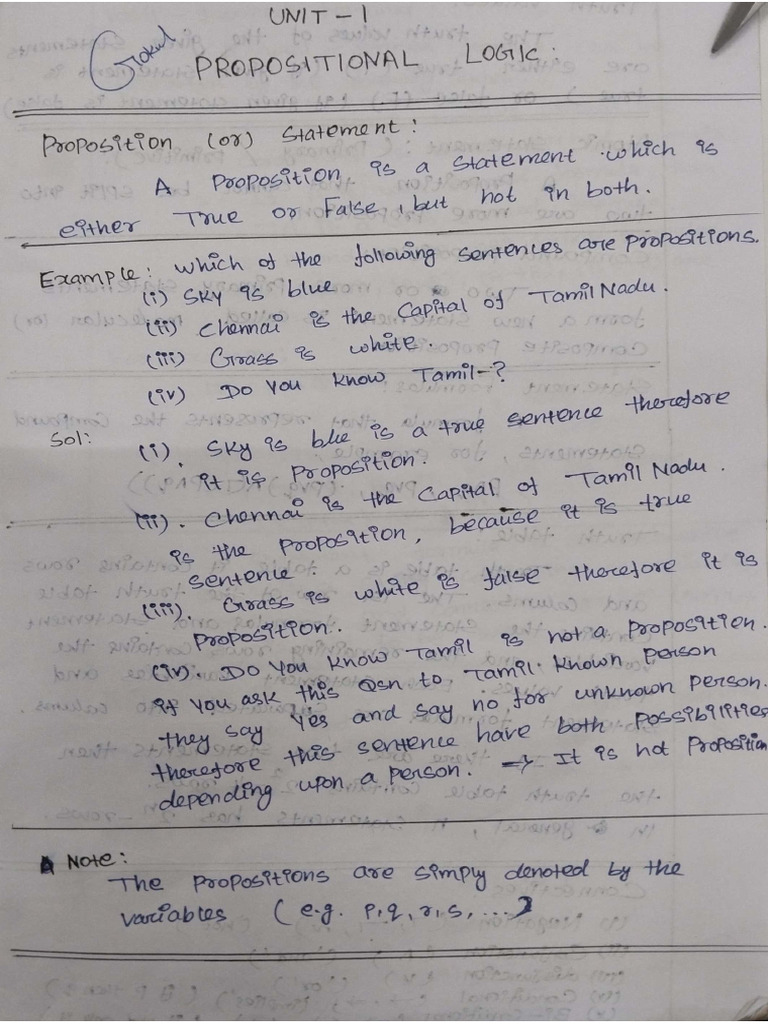 UNIT - 1
Gokul
PROPOSITIONAL LOGIC.
Proposition (or) Statement:
A Proposition is a statement which is
either True or False, but not in both.
Example: which of the following sentences are propositions.
(i) Sky is blue
(ii) Chennai is the Capital of Tamil Nadu.
(iii) Grass is white.
(iv) Do you know Tamil-?
Sol:
(i). Sky is blue is a true sentence therefore
it is proposition.
(ii). Chennai is the Capital of Tamil Nadu.
is the proposition, because it is true
sentence.
(iii). Grass is white is false therefore it is
proposition.
(iv). Do you know Tamil is not a proposition.
if you ask this Qsn to Tamil known person
they say Yes and say no for unknown person.
therefore this sentence have both possibilities
depending upon a person. → It is not Proposition
Note:
The propositions are simply denoted by the
variables (e.g. p, q, r, s, ...)